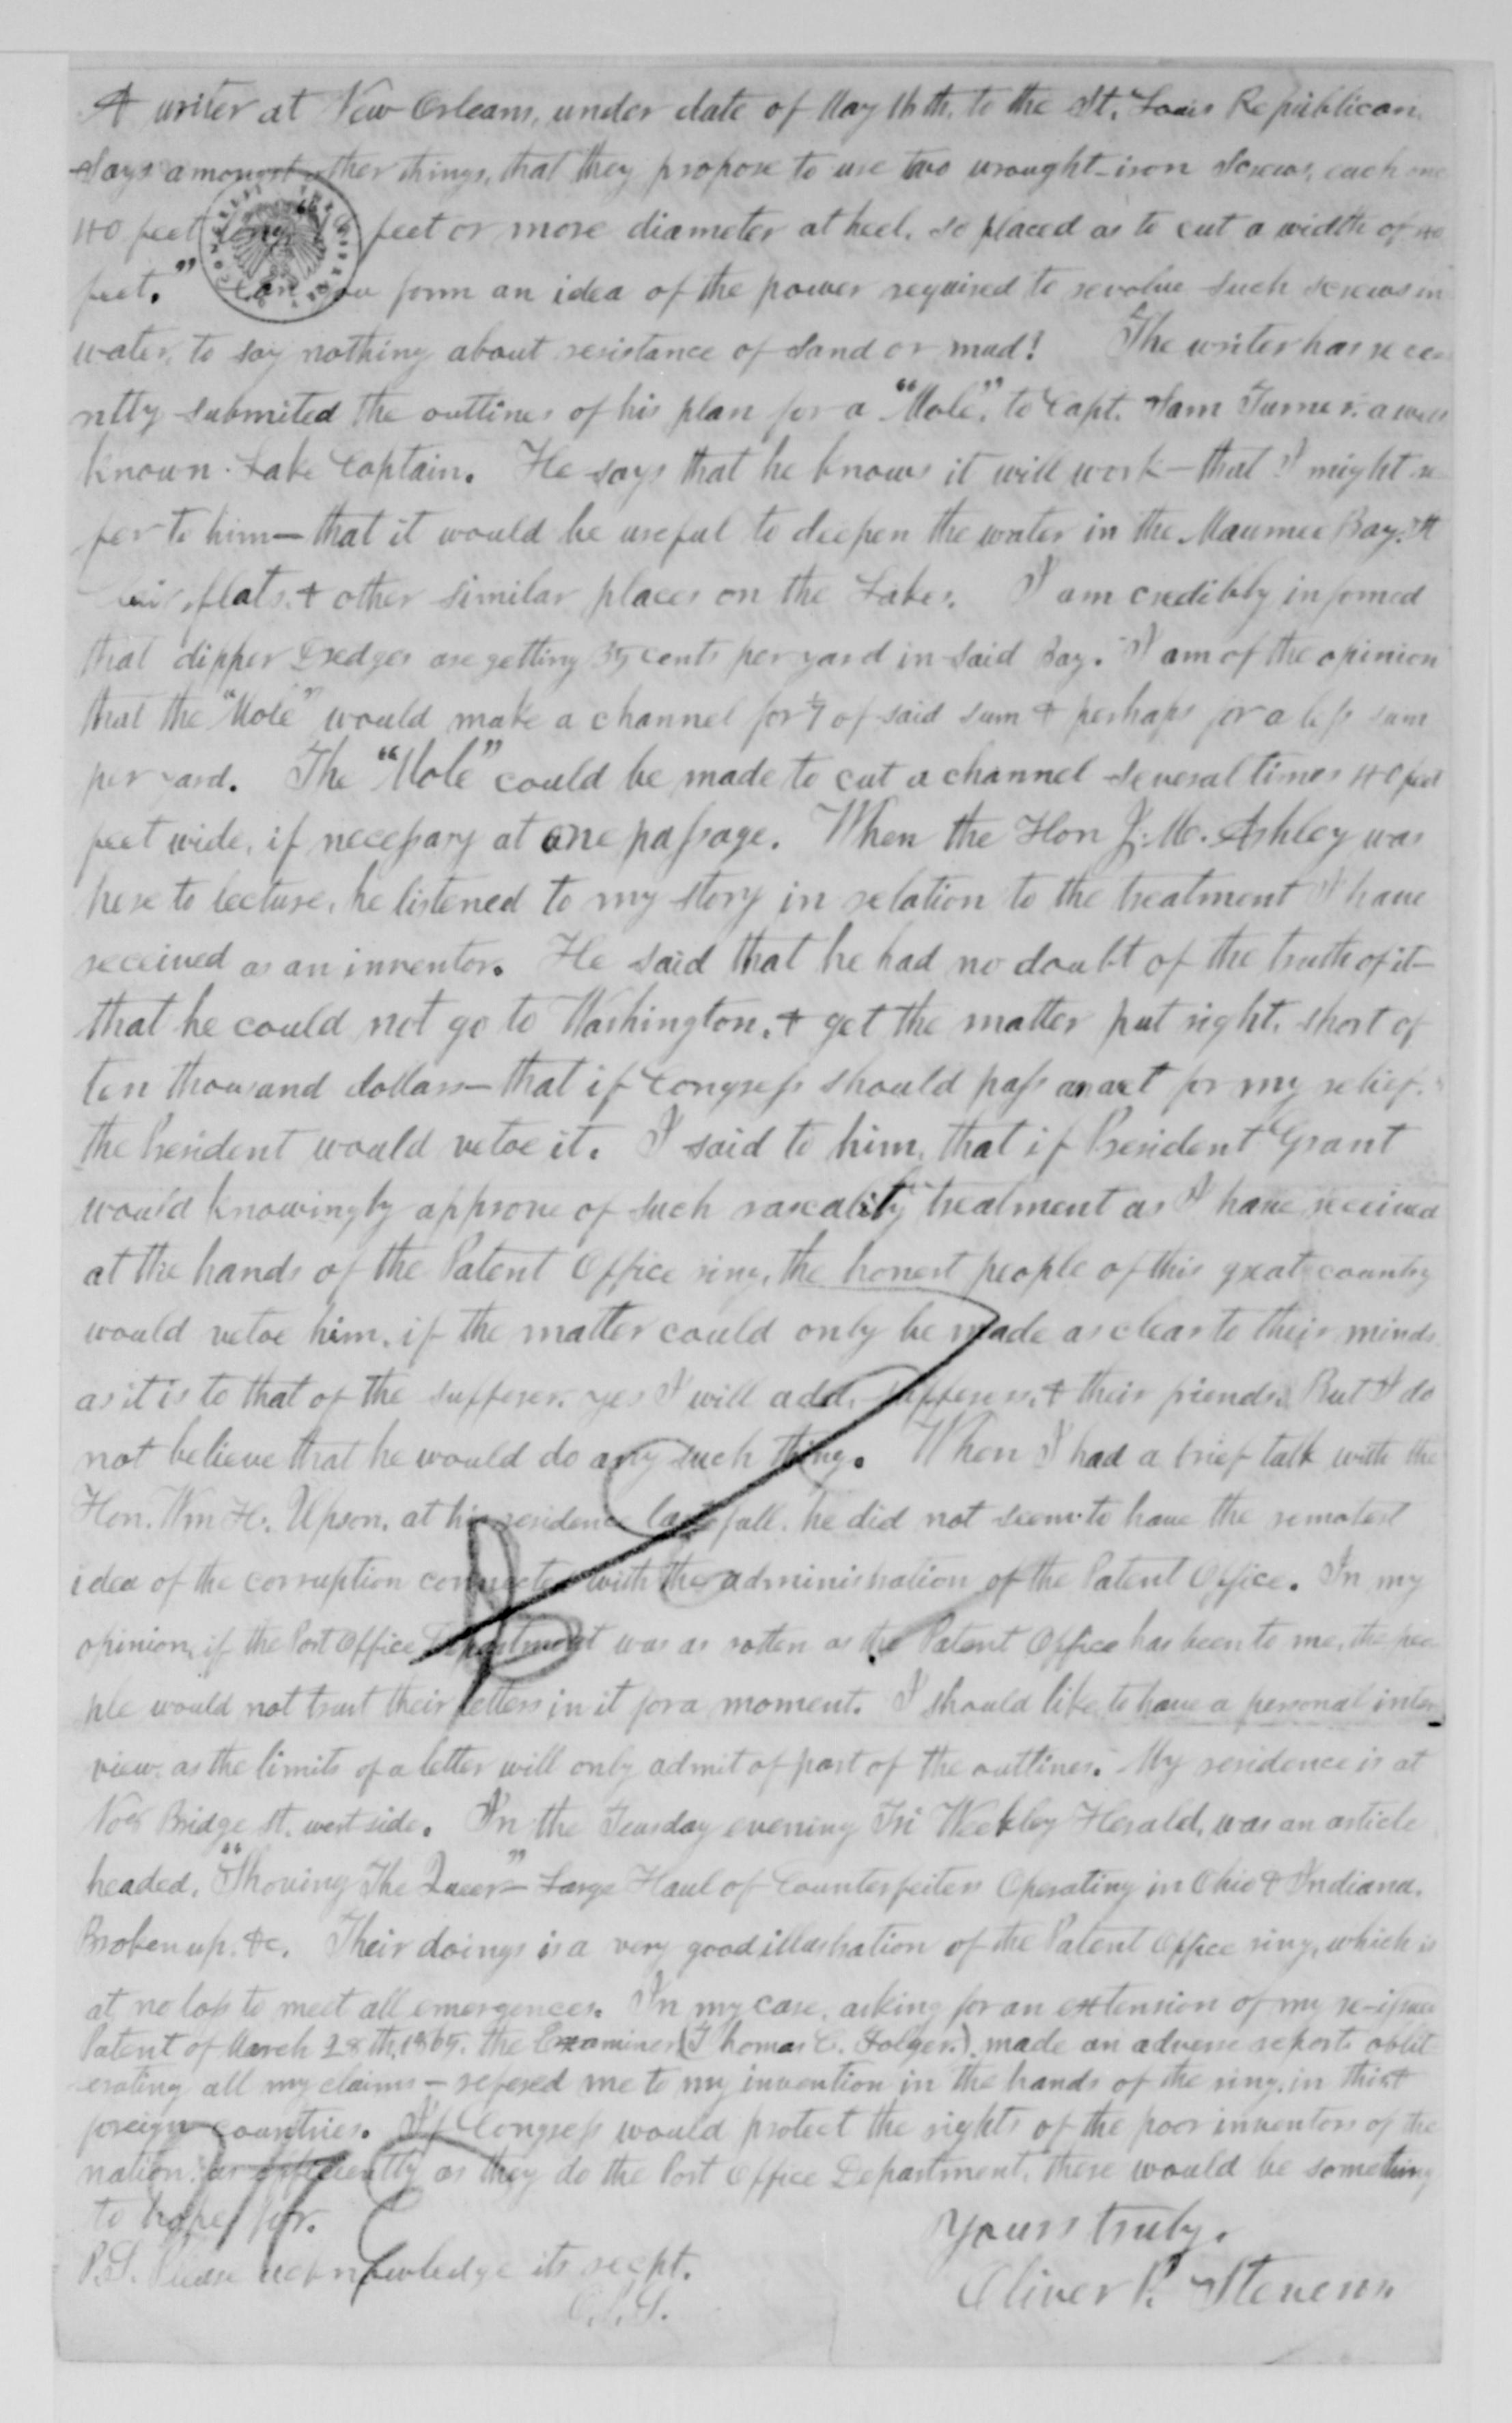 A writer at New Orleans, under date of May 16th, to the St. Louis Republican,
says amongst other things, that they propose to use two wrought-iron screws, each one
40 feet long feet or more diameter at heel, so placed as to cut a width of 40
feet." Can you form an idea of the power required to revolve such screws in
water, to say nothing about resistance of sand or mud! The writer has rece
ntly submited the outlines of his plan for a "Mole", to Capt. Sam Turner, a well
known Lake Captain. He says that he knows it will work — that I might re
fer to him — that it would be useful to deepen the water in the Maumee Bay, St
Clair, flats, & other similar places on the Lakes. I am credibly informed
that dipper Dredges are getting 35 cents per yard in said Bay. I am of the opinion
that the "Mole" would make a channel for of said sum & perhaps for a less sum
per yard. The "Mole" could be made to cut a channel several times 40 feet
feet wide, if necessary at one passage. When the Hon J. M. Ashley was
here to lecture, he listened to my story in relation to the treatment I have
received as an inventor. He said that he had no doubt of the truth of it —
that he could not go to Washington, & get the matter put right, short of
ten thousand dollars — that if Congress should pass an act for my relief,
the President would vetoe it. I said to him, that if President Grant
would knowingly approve of such rascality treatment as I have received
at the hands of the Patent Office ring, the honest people of this great country
would vetoe him, if the matter could only be made as clear to their minds
as it is to that of the sufferer, yes I will add, sufferers, & their friends. But I do
not believe that he would do any such thing. When I had a brief talk with the
Hon. Wm H. Upson, at his residence last fall, he did not seem to have the remotest
idea of the corruption connected with the administration of the Patent Office. In my
opinion, if the Post Office Department was as rotten as the Patent Office has been to me, the peo
ple would not trust their letters in it for a moment. I should like to have a personal inter
view, as the limits of a letter will only admit of part of the outlines. My residence is at
No Bridge St. west side. In the Teusday evening Tri Weekley Herald, was an article
headed, "Shoving The Queer" — Large Haul of Counterfeiters Operating in Ohio & Indiana,
Broken up, &c. Their doings is a very good illustration of the Patent Office ring, which is
at no loss to meet all emergences. In my case, asking for an extension of my re-issue
Patent of March 28th, 1865, the Examiner (Thomas C. Folger.), made an adverse report, oblit
erating all my claims — refered me to my invention in the hands of the ring, in this &
foreign countries. If Congress would protect the rights of the poor inventors of the
nation, as efficiently as they do the Post Office Department, there would be something
to hope for.
Yours truly,
Oliver P. Stevens
P.S. Please acknowledge its recept.
O.P.S.